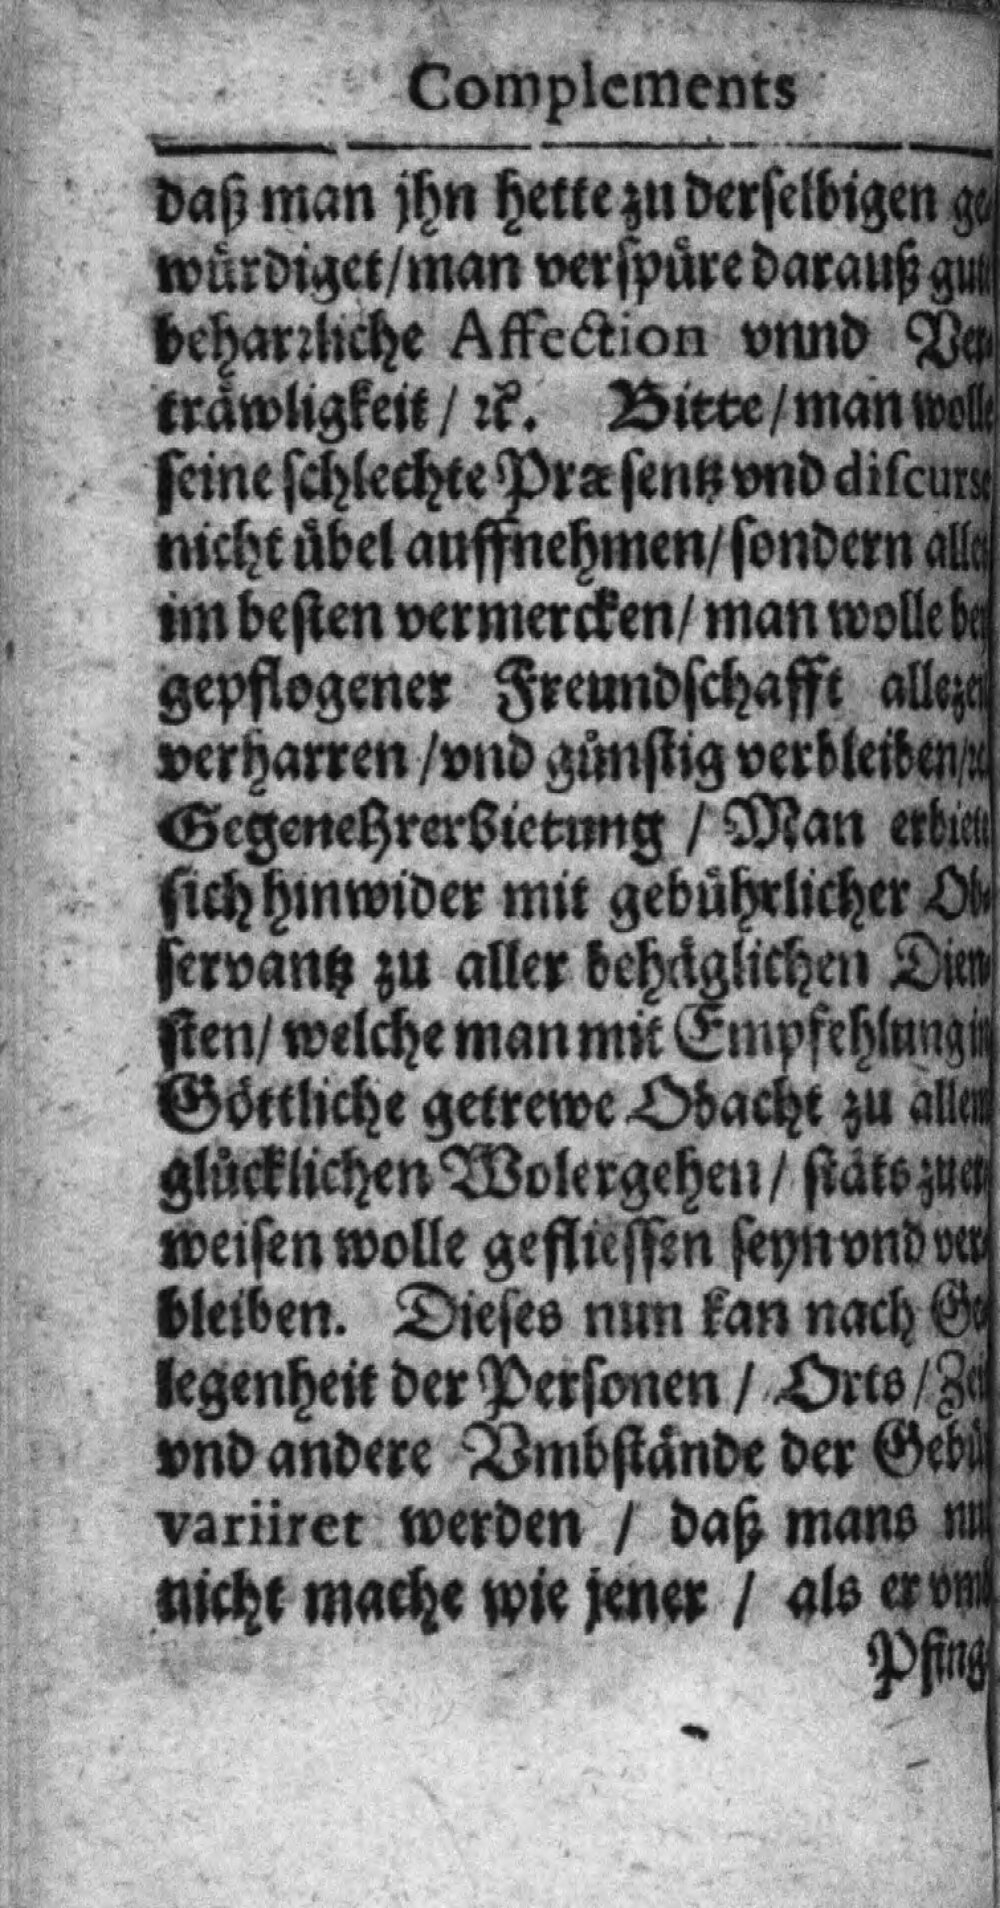 Complements
daß man jhn hette zu derselbigen ge
würdiget/man verspüre darauß gute
beharꝛliche Affection vnnd Ver
träwligkeit / ꝛc. Bitte / man wolle
seine schlechte Præsentz vnd discurse
nicht übel auffnehmen/sondern alles
im besten vermercken/man wolle bey
gepflogener Freundschafft allezeit
verharren /vnd günstig verbleiben/ꝛc.
Gegenehrerbietung / Man erbiete
sich hinwider mit gebührlicher Ob-
servantz zu aller behäglichen Dien-
sten/ welche man mit Empfehlung in
Göttliche getrewe Obacht zu allem
glücklichen Wolergehen/ stäts zuer-
weisen wolle gefliessen seyn vnd ver-
bleiben. Dieses nun kan nach Ge-
legenheit der Personen / Orts / Zeit
vnd andere Vmbstände der Gebür
variiret werden / daß mans nur
nicht mache wie jener / als er vmb
Pfing-